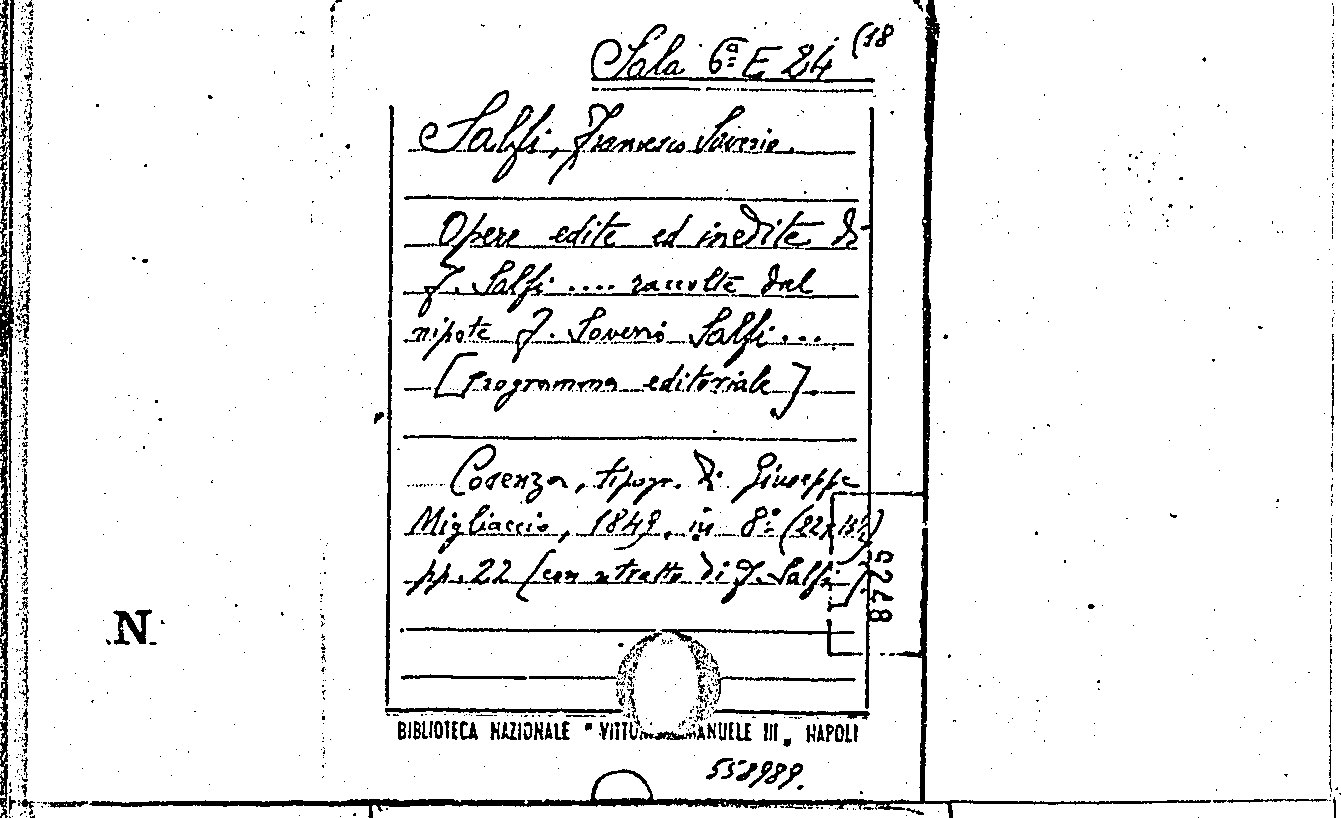 Sala 6ª E 24 (18
Salfi, Francesco Saverio.
Opere edite ed inedite di
F. Salfi .... raccolte dal
nipote F. Saverio Salfi ...
[Programma editoriale].
Cosenza, tipogr. di Giuseppe
Migliaccio, 1849, in 8º (22x
pp. 22 (con ritratto di F. Salfi)
8725
N
BIBLIOTECA NAZIONALE "VITTO MANUELE III„ NAPOLI
558989.